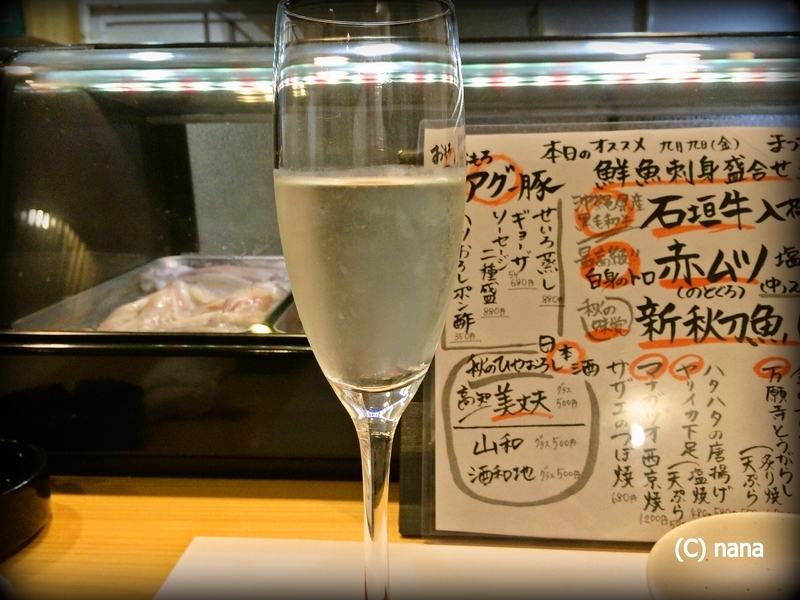 本日のオススメ 九月九日(金)
鮮魚刺身盛合せ
アグー豚
せいろ蒸し 880
ギョーザ 680円
ソーセージ二種盛 880円
おろしポン酢 350円
石垣牛入
最高級!!
白身のトロ
赤ムツ 塩
(のどぐろ)
秋の味覚
新秋刀魚
秋のひやおろし日本酒
高知 美丈夫 グラス500円
山和 グラス500円
酒和地 グラス500円
サザエのつぼ焼 680円
マナガツオ西京焼 1200円
ヤリイカ下足(塩焼 天ぷら
ハタハタの唐揚げ
万願寺とうがらし
(炙り焼 天ぷら
(C) nana